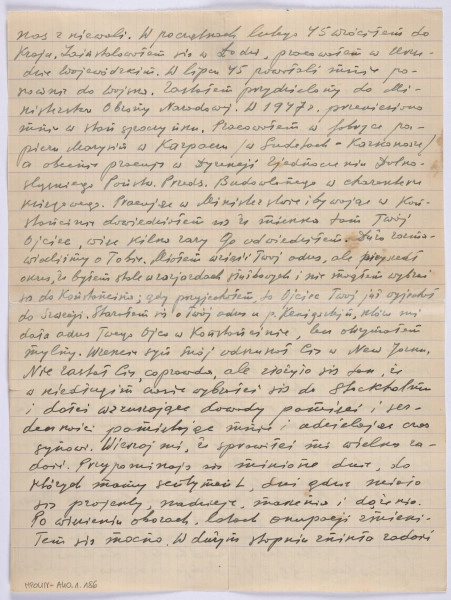 nas z niewoli. W początkach lutego 45 wróciłem do
Kraju. Zainstalowałem się w Łodzi, pracowałem w Urzę-
dzie Wojewódzkim. W lipcu 45 powołali mnie po-
nownie do wojska. Zostałem przydzielony do Mi-
nisterstwa Obrony Narodowej. W 1947 r. przeniesiono
mnie w stan spoczynku. Pracowałem w fabryce pa-
pieru w Karpaczu /w Sudetach - Karkonosze/
a obecnie pracuję w Dyrekcji Zjednoczenia Dolno-
śląskiego Państw. Przeds. Budowlanego w charakterze
księgowego. Pracując w Ministerstwie i bywając w Kon-
stancinie dowiedziałem się że mieszka tam Twój
Ojciec, więc kilka razy Go odwiedziłem. Dużo rozma-
wialiśmy o Tobie. Miałem wziąć Twój adres, ale przyszedł
okres, że byłem stale w rozjazdach służbowych i nie mogłem wybrać
się do Konstancina; gdy przyjechałem, to Ojciec Twój już wyjechał
do Szwecji. Starałem się o Twój adres u p. która mi
dała adres Twego Ojca w Konstancinie, lecz otrzymałem
mylny. Wreszcie syn mój odszukał Cię w New Yorku.
Nie zastał Cię, coprawda, ale złożyło się tak, że
w niedługim czasie wybrałeś się do Stockholmu
i dałeś wzruszające dowody pamięci i ser-
deczności pamiętając mnie i udzielając czas
synowi. Wierzaj mi, że sprawiłeś mi wielką ra-
dość. Przypominają się minione dni, do
których mamy sentyment, dni gdzie miało
się projekty, nadzieje, marzenia i dążenia.
Po więzieniu obozach, latach okupacji zmieni-
łem się mocno. W dużym stopniu znikła radość
MPOLIN-A40.1.186